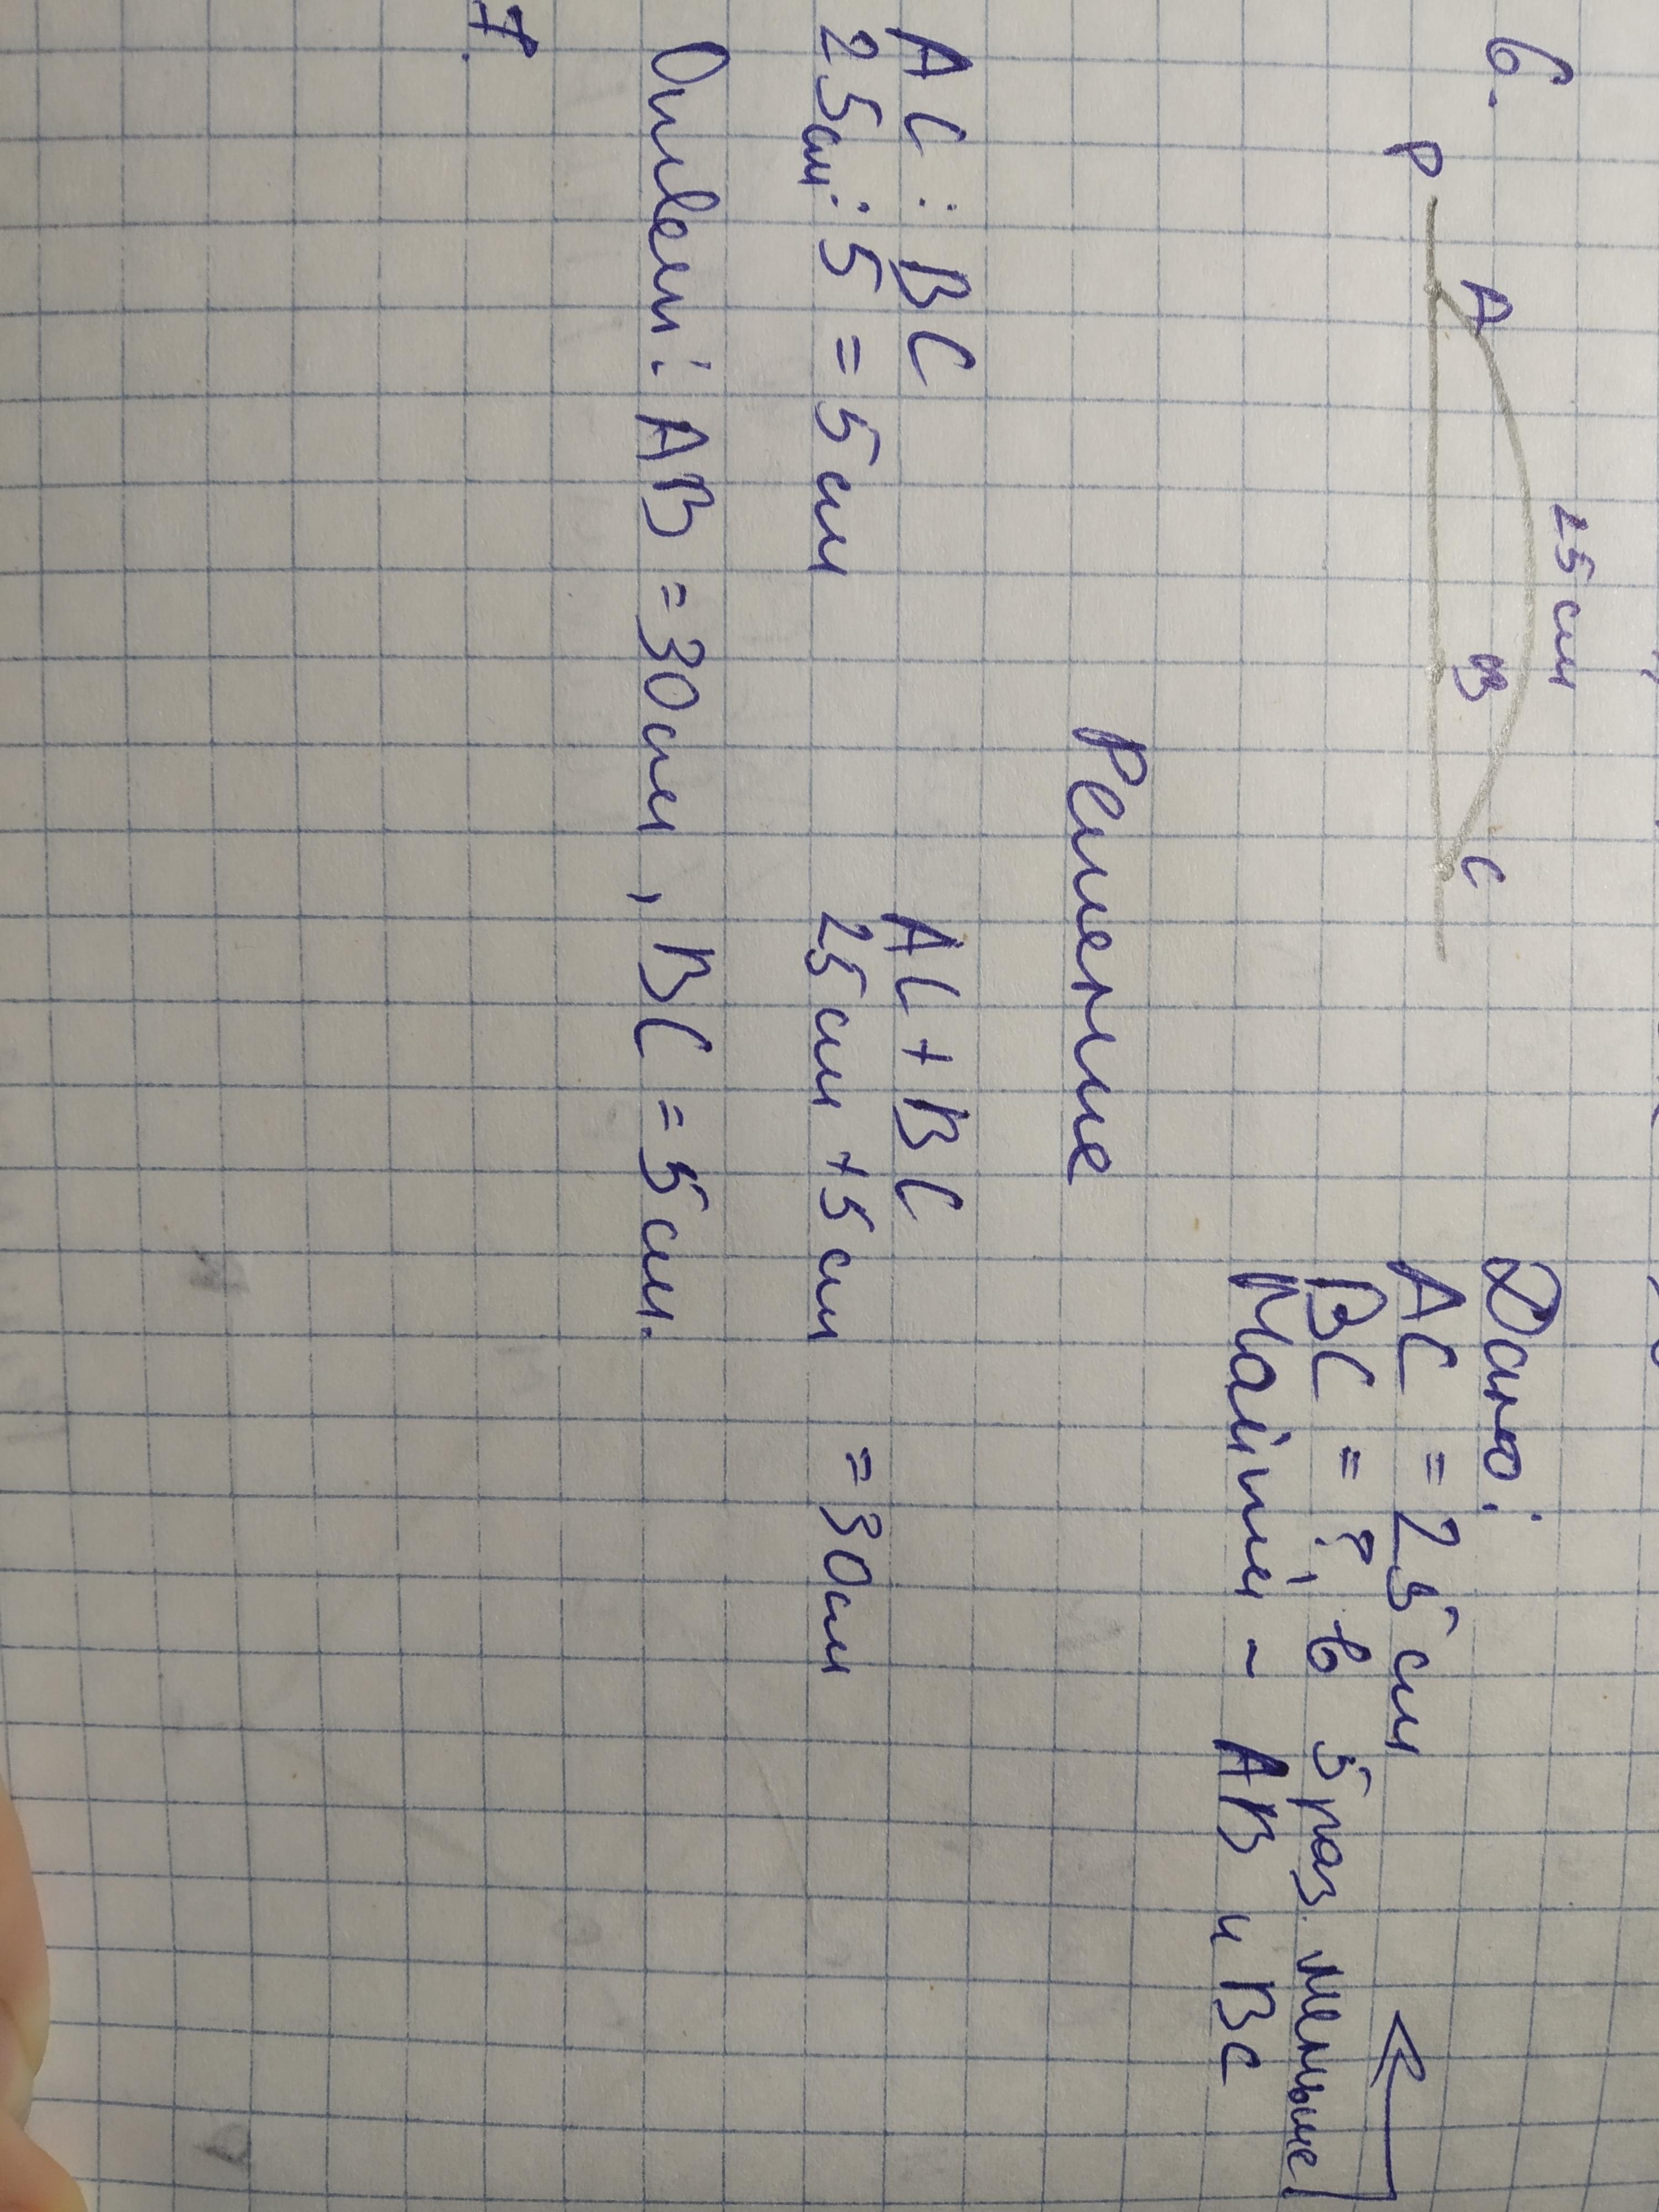 6.
25 см
P A B C
Дано:
AC = 25 см
BC = ?, в 5 раз. меньше
Найти - AB и BC
Решение
AC : BC AC + BC
25см : 5 = 5 см 25 см + 5 см = 30 см
Ответ: AB = 30 см, BC = 5 см.
7.